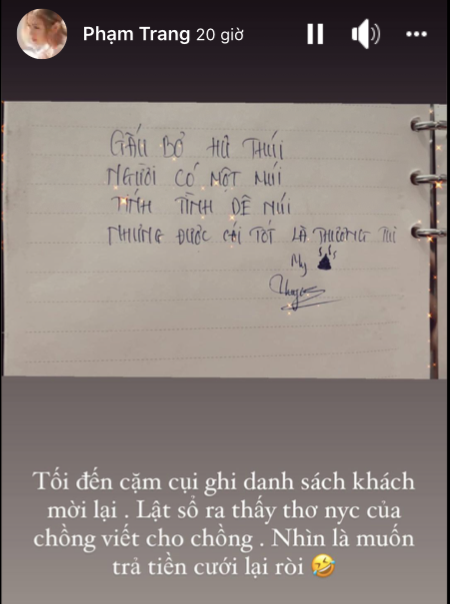 Phạm Trang 20 giờ
GẤU BỎ HŨ THÚI
NGƯỜI CÓ MỘT MÚI
TÍNH TÌNH DÊ NÚI
NHƯNG ĐƯỢC CÁI TỐT LÀ THƯƠNG
My
Tối đến cặm cụi ghi danh sách khách
mời lại . Lật sổ ra thấy thơ nyc của
chồng viết cho chồng . Nhìn là muốn
trả tiền cưới lại ròi 🤣